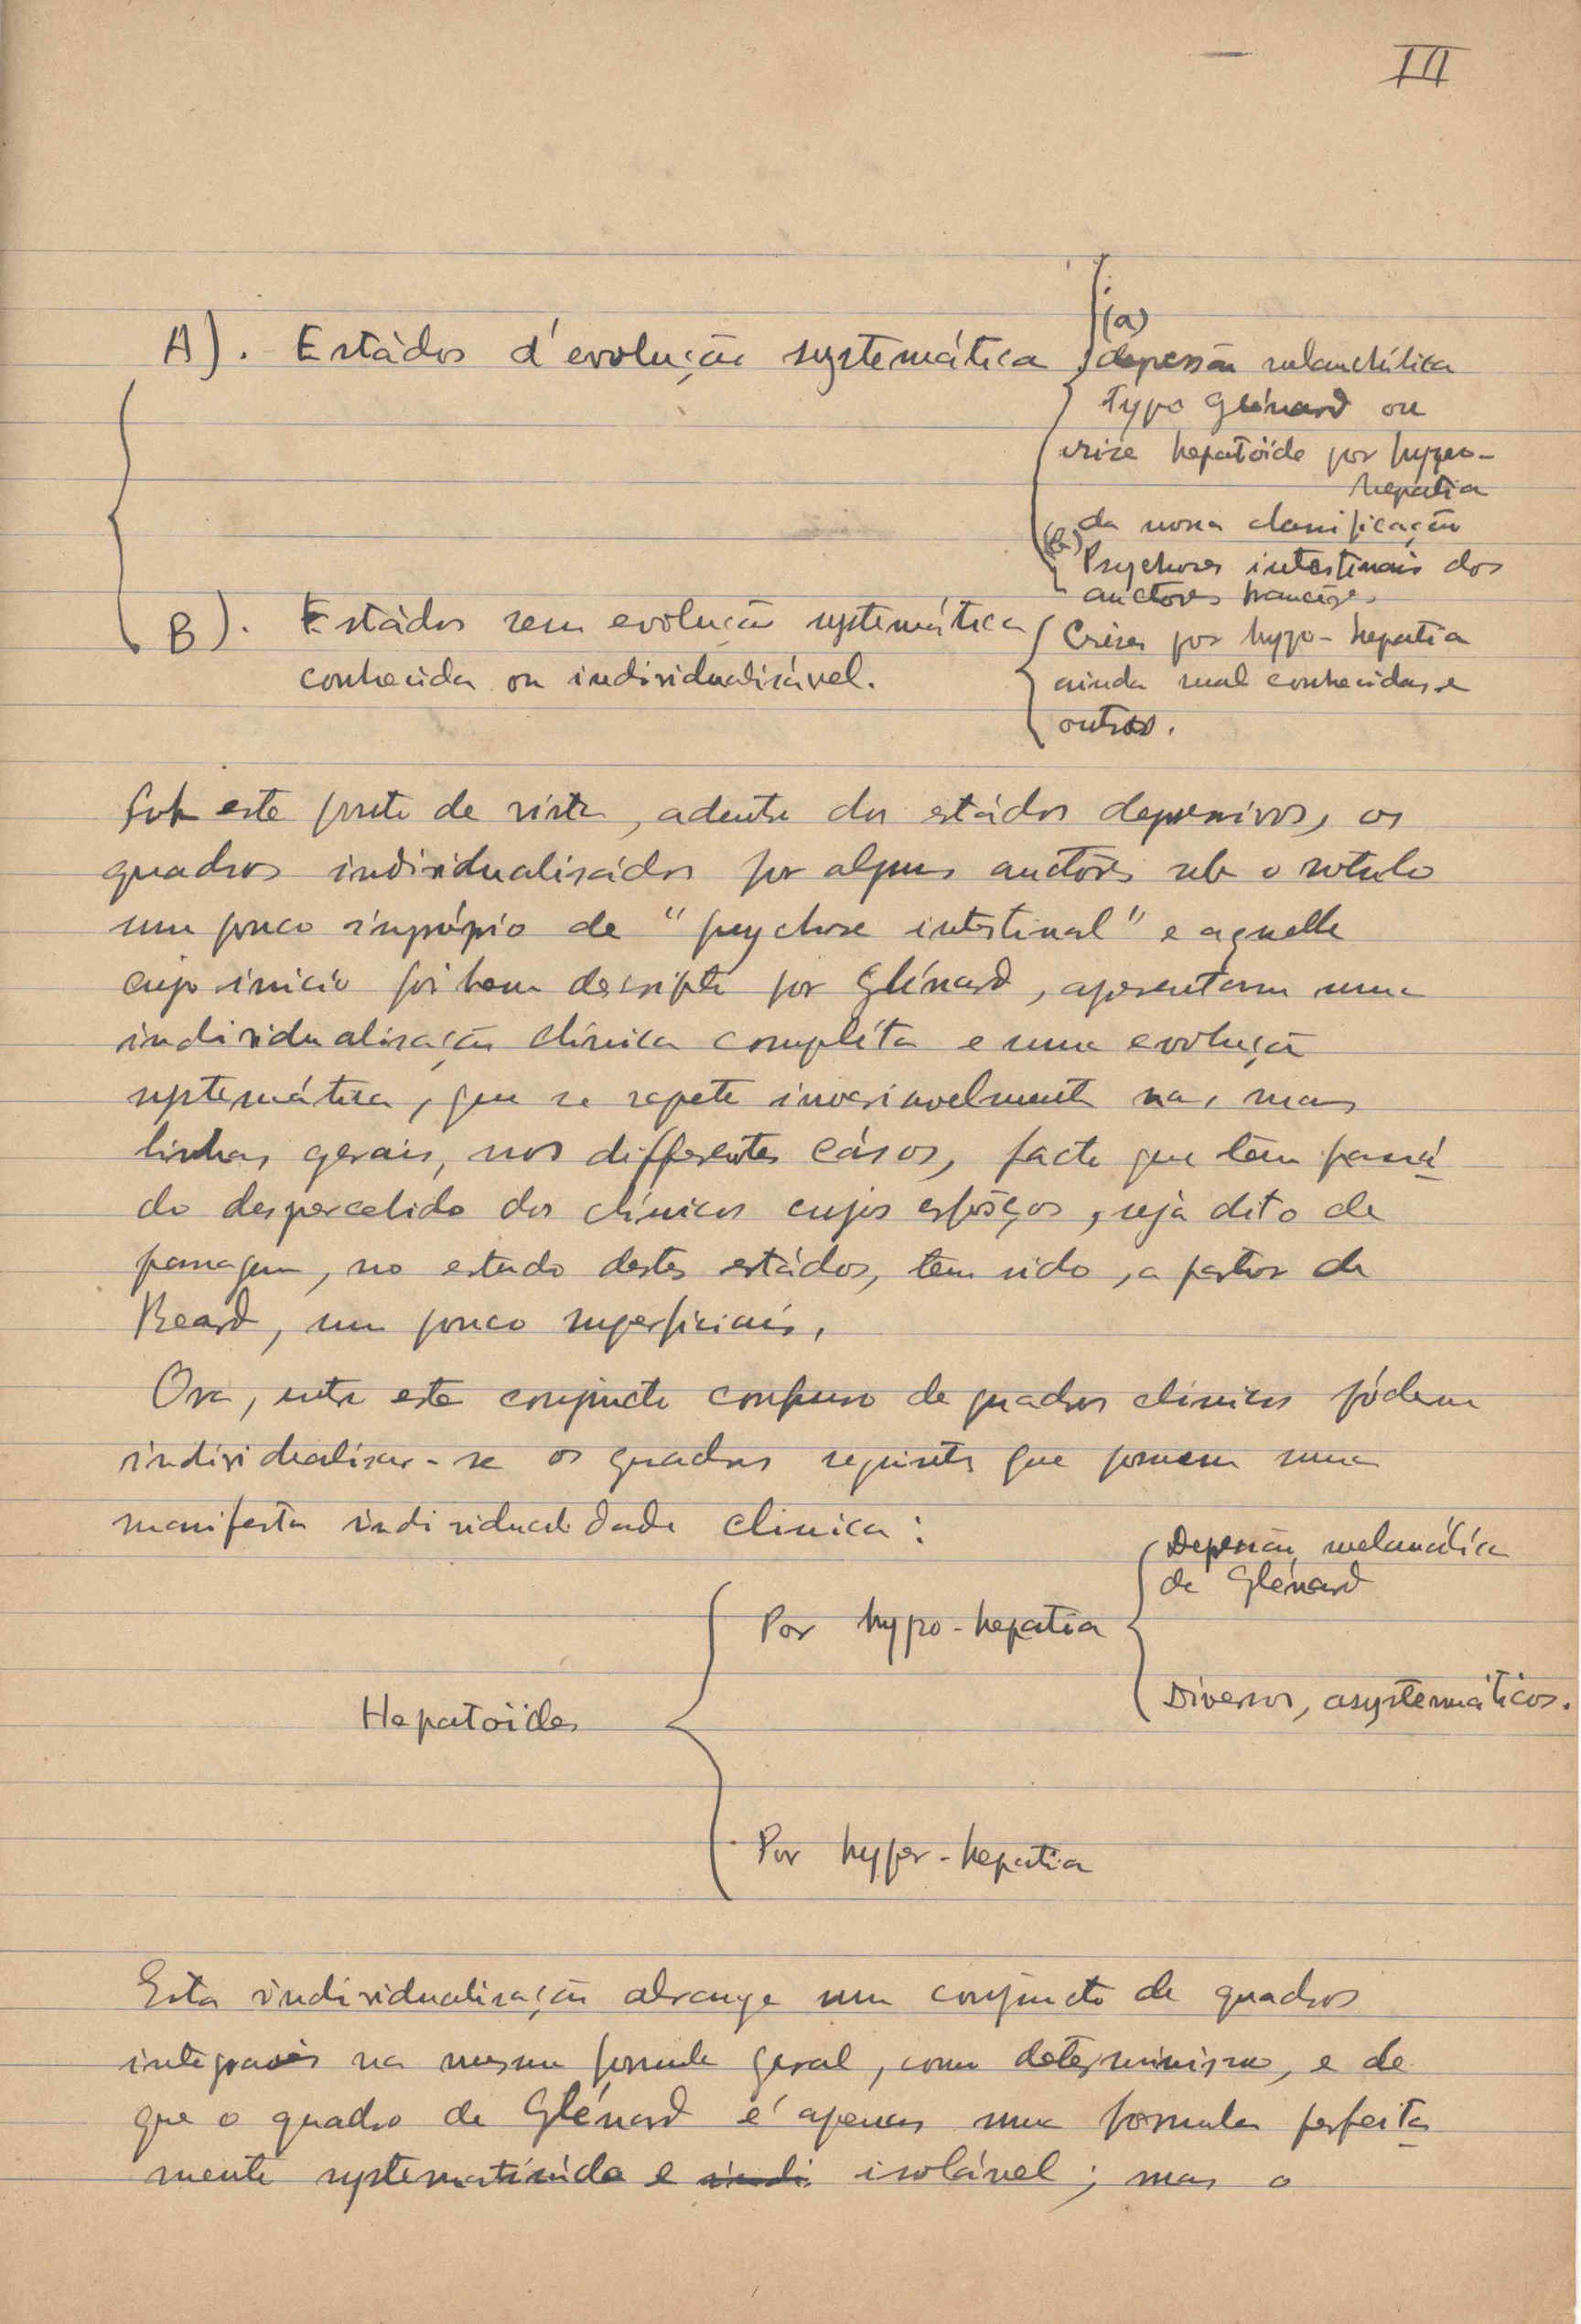 III
A). Estádos d'evolução systemática
(a)
depressão melanchólica
typo Glénard ou
crise hepatoïde por hypo-
hepatia
da nossa classificação
(b) Psychoses intestinais dos
auctores francêses
B). Estádos sem evolução systemática
conhecida ou individualisável.
Crises por hypo-hepatia
ainda mal conhecidas e
outros.
Sob este ponto de vista, adentro dos estádos depressivos, os
quadros individualisádos por alguns auctôres sob o rotulo
um pouco impróprio de "psychose intestinal" e aquelle
cujo inicio foi bem descripto por Glénard, apresentam uma
individualisação clínica compléta e uma evolução
systemática, que se repete invariavelmente nas suas
linhas gerais, nos differentes cásos, facto que tem passá
do despercebido dos clínicos cujos esfôrços, seja dito de
passagem, no estudo destes estádos, tem sido, a partir de
Beard, um pouco superficiais.
Ora, entre este conjuncto confuso de quadros clínicos pódem
individualisar-se os quadros seguintes que possuem uma
manifesta individualidade clinica:
Hepatoïdes
Por hypo-hepatia
Depressão melancólica
de Glénard
Diversos, asystemáticos.
Por hyper-hepatia
Esta individualisação abrange um conjuncto de quadros
integraveis na mesma formula geral, como determinismo, e de
que o quadro de Glénard é apenas uma formula perfeita
mente systematisáda e indi isolável; mas o